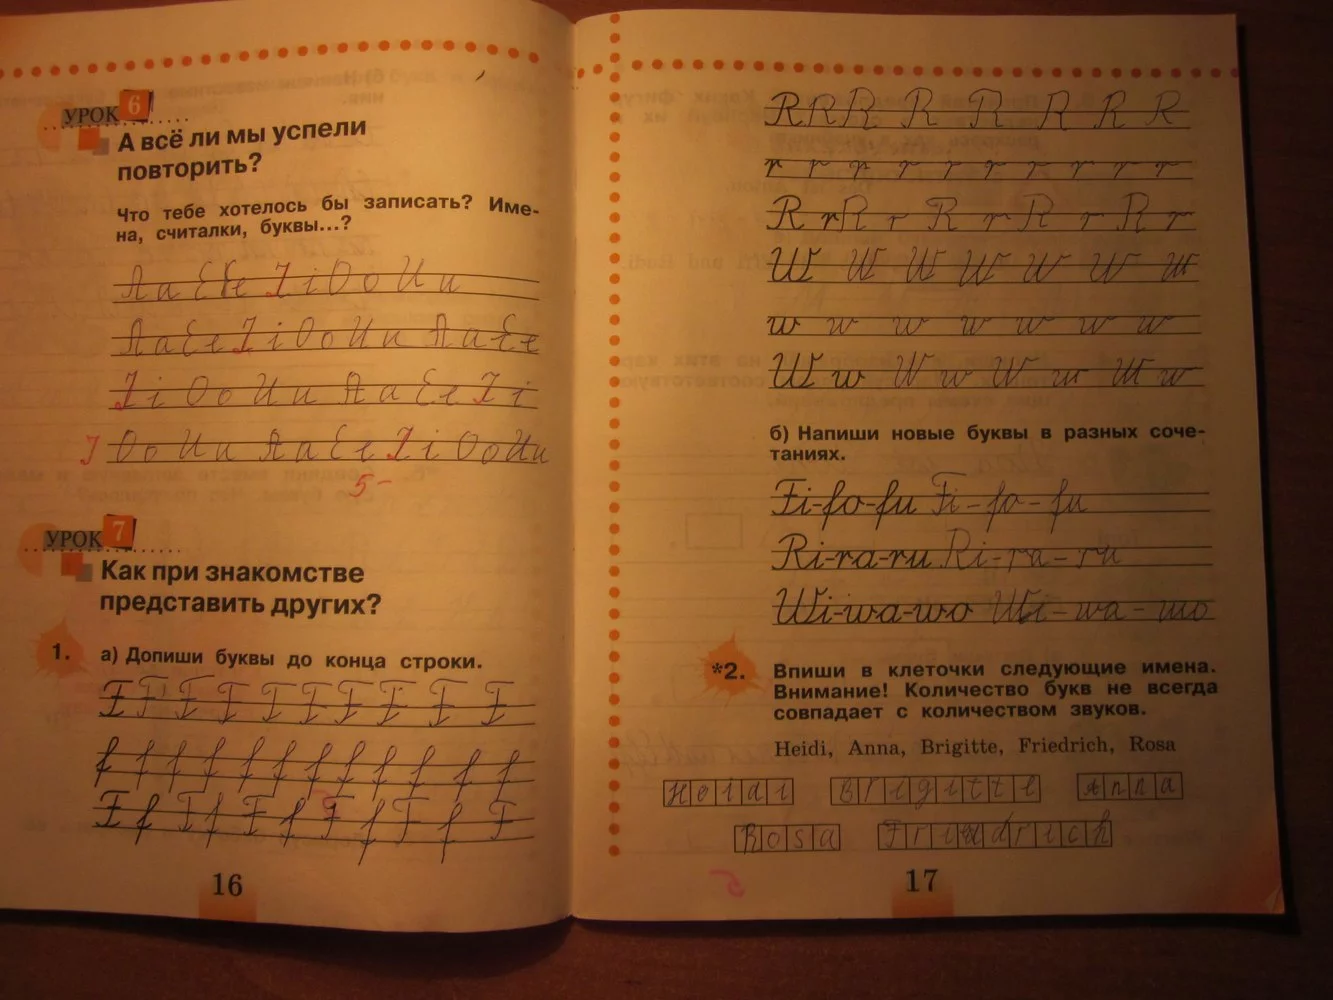 УРОК 6
А всё ли мы успели
повторить?
Что тебе хотелось бы записать? Име-
на, считалки, буквы...?
Aa Ee Ii Oo Uu
Aa Ee Ii Oo Uu Aa Ee
Ii Oo Uu Aa Ee Ii
I Oo Uu Aa Ee Ii Oo Uu
5-
УРОК 7
Как при знакомстве
представить других?
1. а) Допиши буквы до конца строки.
F F F F F F F F F F
f f f f f f f f f f f f
F f F f F f F f F f F
16
R R R R R R R R
r r r r r r r r r r
R r R r R r R r R r
W W W W W W W
w w w w w w w
W w W w W w W w
б) Напиши новые буквы в разных соче-
таниях.
Fi-fo-fu Fi-fo-fu
Ri-ra-ru Ri-ra-ru
Wi-wa-wo Wi-wa-wo
*2. Впиши в клеточки следующие имена.
Внимание! Количество букв не всегда
совпадает с количеством звуков.
Heidi, Anna, Brigitte, Friedrich, Rosa
Heidi Brigitte Anna
Rosa Friedrich
5
17